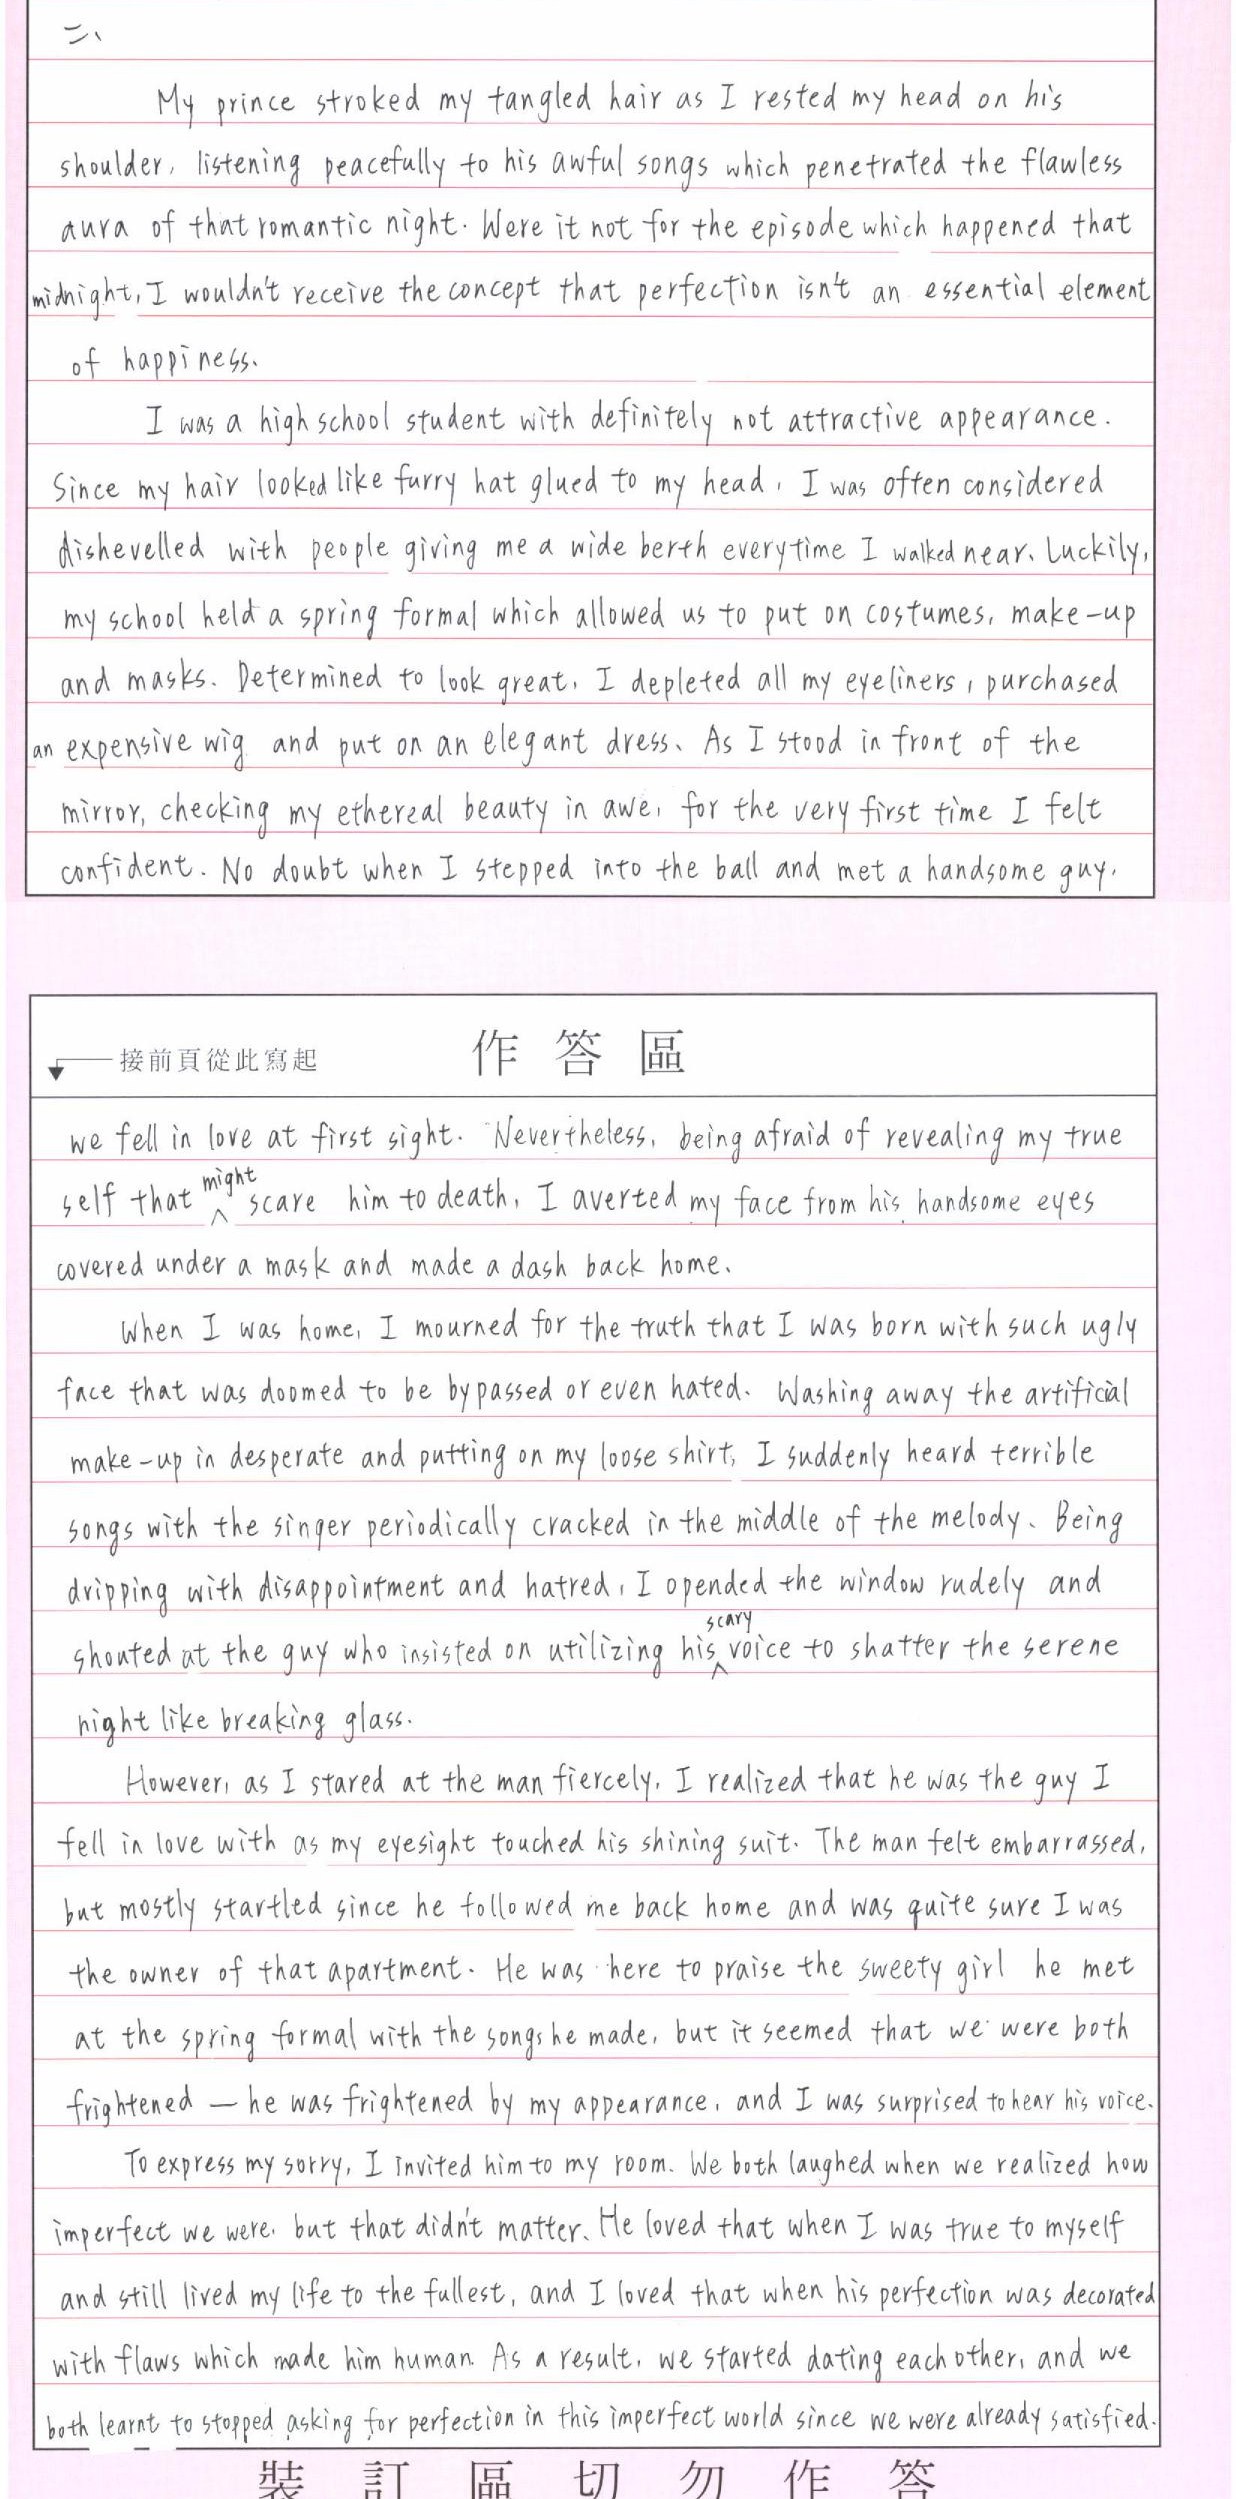 二、
My prince stroked my tangled hair as I rested my head on his
shoulder, listening peacefully to his awful songs which penetrated the flawless
aura of that romantic night. Were it not for the episode which happened that
midnight, I wouldn't receive the concept that perfection isn't an essential element
of happiness.
I was a high school student with definitely not attractive appearance.
Since my hair looked like furry hat glued to my head, I was often considered
dishevelled with people giving me a wide berth everytime I walked near. Luckily,
my school held a spring formal which allowed us to put on costumes, make-up
and masks. Determined to look great, I depleted all my eyeliners, purchased
an expensive wig and put on an elegant dress. As I stood in front of the
mirror, checking my ethereal beauty in awe, for the very first time I felt
confident. No doubt when I stepped into the ball and met a handsome guy,
接前頁從此寫起 作答區
we fell in love at first sight. Nevertheless, being afraid of revealing my true
self that might scare him to death, I averted my face from his handsome eyes
covered under a mask and made a dash back home.
When I was home, I mourned for the truth that I was born with such ugly
face that was doomed to be bypassed or even hated. Washing away the artificial
make-up in desperate and putting on my loose shirt, I suddenly heard terrible
songs with the singer periodically cracked in the middle of the melody. Being
dripping with disappointment and hatred, I opended the window rudely and
shouted at the guy who insisted on utilizing his scary voice to shatter the serene
night like breaking glass.
However, as I stared at the man fiercely, I realized that he was the guy I
fell in love with as my eyesight touched his shining suit. The man felt embarrassed,
but mostly startled since he followed me back home and was quite sure I was
the owner of that apartment. He was here to praise the sweety girl he met
at the spring formal with the songs he made, but it seemed that we were both
frightened — he was frightened by my appearance, and I was surprised to hear his voice.
To express my sorry, I invited him to my room. We both laughed when we realized how
imperfect we were, but that didn't matter. He loved that when I was true to myself
and still lived my life to the fullest, and I loved that when his perfection was decorated
with flaws which made him human. As a result, we started dating each other, and we
both learnt to stopped asking for perfection in this imperfect world since we were already satisfied.
裝訂區切勿作答